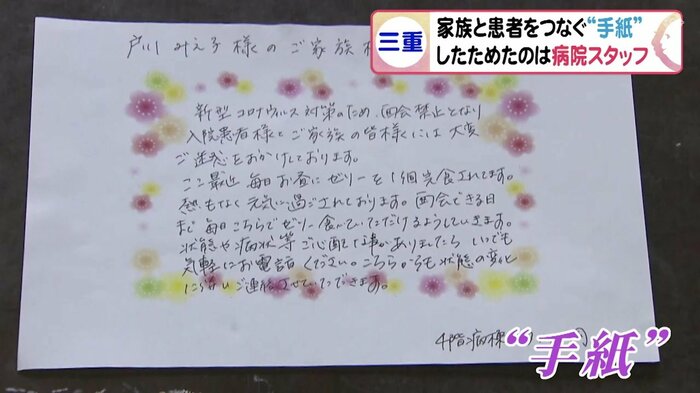 三重
家族と患者をつなぐ“手紙”
したためたのは病院スタッフ
戸川 みえ子 様 の ご家族
新型コロナウィルス対策のため、面会禁止となり
入院患者様とご家族の皆様には大変
ご迷惑をおかけしております。
ここ最近 毎日お昼にゼリーを1個完食されてます。
熱もなく元気に過ごされております。面会できる日
まで毎日こちらでゼリー食べていただけるようしていきます。
状態や病状等ご心配な事がありましたら いつでも
気軽にお電話ください。こちらからも状態の変化
に伴いご連絡させていただきます。
4階病棟
“手紙”